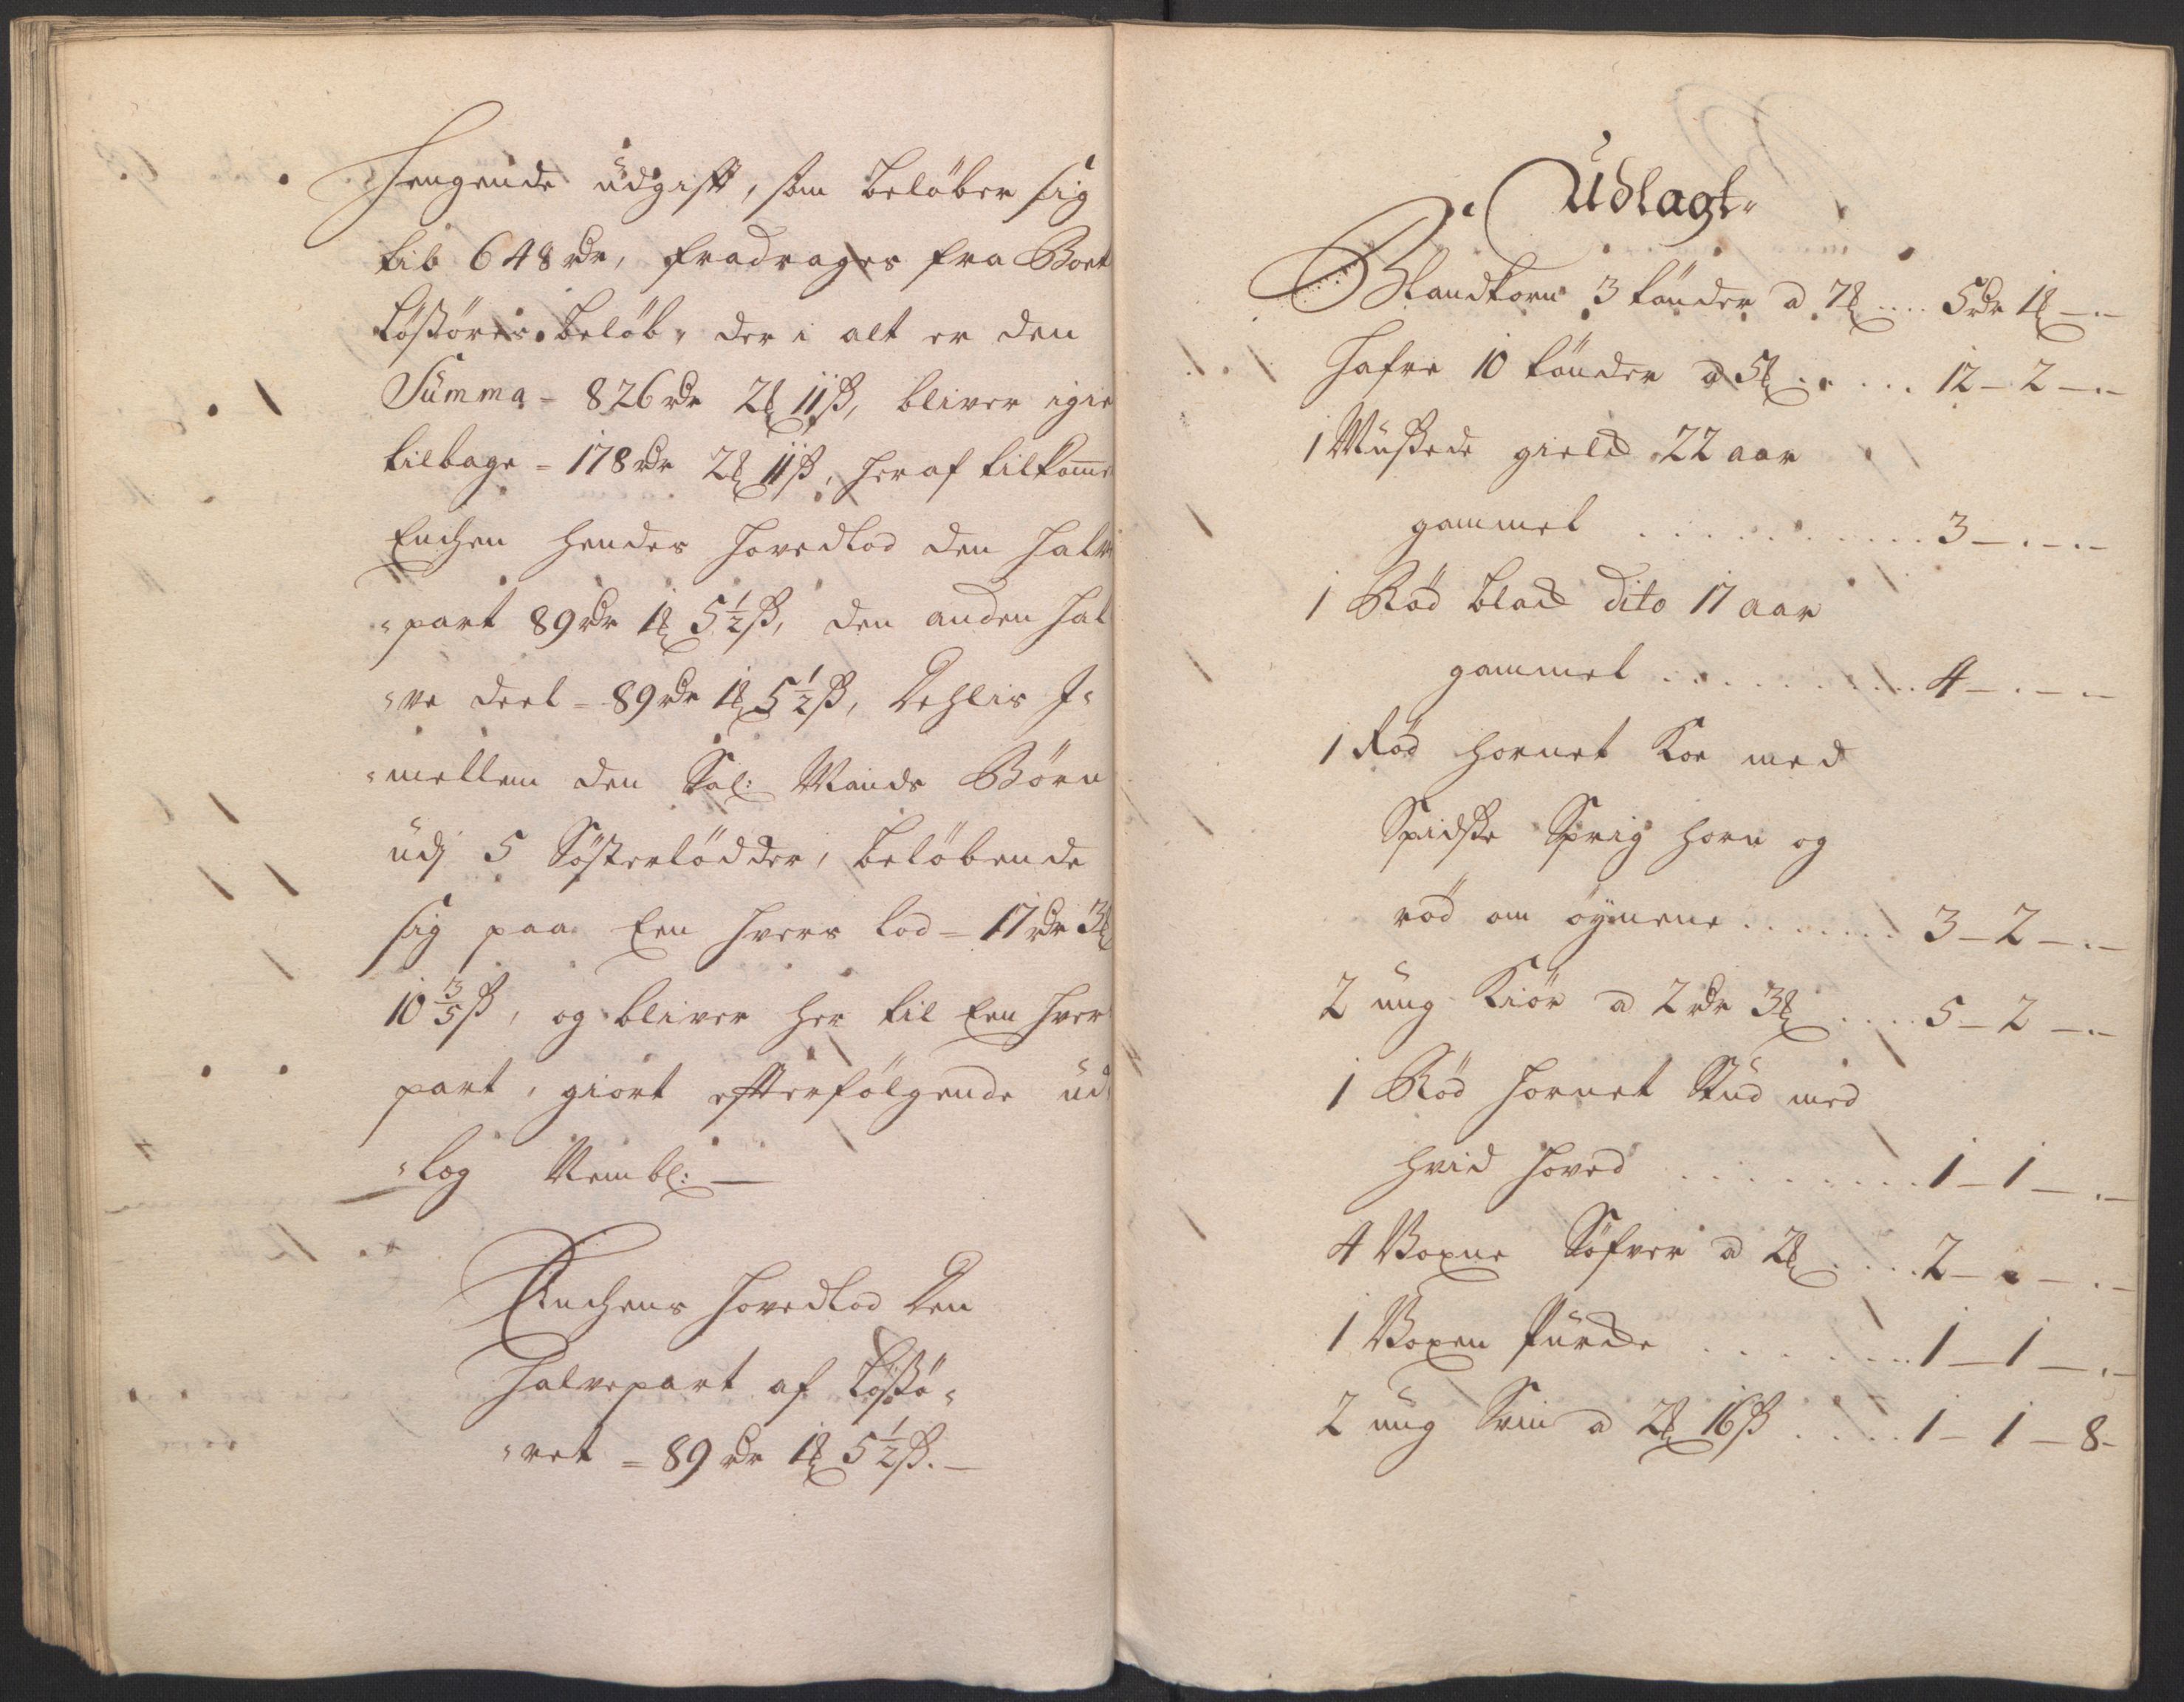 Hengende udgift, som beløber sig
til 648 rdr, fradrages fra Boet
Løssøres beløb, der i alt er den
Summa = 826 rdr 2 ₰ 11 ß, bliver igie
tilbage = 178 rdr 2 ₰ 11 ß, her af tilkomme
Enchen hendes Hovedlod den halv
"part 89 rdr 1 ₰ 5½ ß, den anden hal
"ve deel = 89 rdr 1 ₰ 5½ ß, Dehlis J"
"mellem den Sal: Mands Børn
udj 5 Søsterlødder, beløbende
sig paa Een hvers lod = 17 rdr 3 ₰
10 3/5 ß, og bliver her til Een hver
part, giort efterfølgende ud"
"læg Nembl: —
Enchens Hovedlod Den
Halvepart af Løssø"
"ret = 89 rdr 1 ₰ 5½ ß. —
Udlagt
Blandkorn 3 tønder a 7 ₰ .... 5 rdr 1 ₰ —.—
Hafre 10 tønder a 5 ₰ ..... 12 — 2 —.—
1 Mussede gield 22 aar
gammel ........... 3 —.—.—
1 Rød blaed dito 17 aar
gammel ........... 4 —.—.—
1 Rød hornet Koe med
Spidske Sprig horn og
rød om øynene ....... 3 — 2 —.—
2 ung Kiør a 2 rdr 3 ₰ .... 5 — 2 —.—
1 Rød hornet Stud med
hvid hoved ......... 1 — 1 —.—
4 Voxne Søfver a 2 ₰ .... 2 —.—.—
1 Voxen Purde ....... 1 — 1 —.—
2 ung Svin a 2 ₰ 16 ß ..... 1 — 1 — 8 -